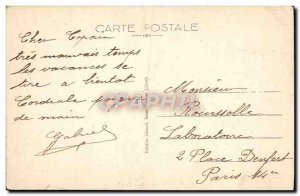 CARTE POSTALE
Cher Copain
très mauvais temps
les vacances se
tire à bientot
Cordiale poignée
de main
Gabriel
Monsieur
Roussolle
Laboratoire
2 Place Denfert
Paris 14e